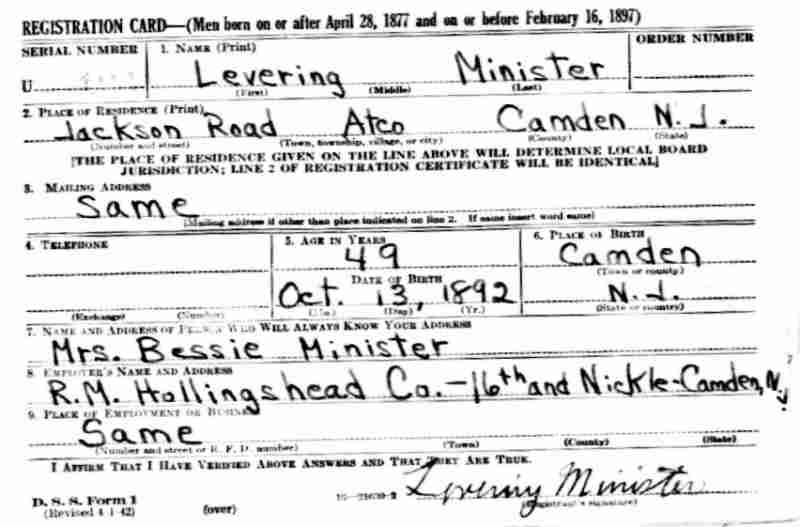 REGISTRATION CARD—(Men born on or after April 28, 1877 and on or before February 16, 1897)
SERIAL NUMBER 1. NAME (Print) ORDER NUMBER
U Levering Minister
(First) (Middle) (Last)
2. PLACE OF RESIDENCE (Print)
Jackson Road Atco Camden N.J.
(Number and street) (Town, township, village, or city) (County) (State)
[THE PLACE OF RESIDENCE GIVEN ON THE LINE ABOVE WILL DETERMINE LOCAL BOARD
JURISDICTION; LINE 2 OF REGISTRATION CERTIFICATE WILL BE IDENTICAL]
3. MAILING ADDRESS
Same
[Mailing address if other than place indicated on line 2. If same insert word same]
4. TELEPHONE 5. AGE IN YEARS 6. PLACE OF BIRTH
49 Camden
DATE OF BIRTH (Town or county)
Oct. 13, 1892 N.J.
(Exchange) (Number) (Mo.) (Day) (Yr.) (State or country)
7. NAME AND ADDRESS OF PERSON WHO WILL ALWAYS KNOW YOUR ADDRESS
Mrs. Bessie Minister
8. EMPLOYER'S NAME AND ADDRESS
R.M. Hollingshead Co.-16th and Nickle-Camden, N.J
9. PLACE OF EMPLOYMENT OR BUSINESS
Same
(Number and street or R. F. D. number) (Town) (County) (State)
I AFFIRM THAT I HAVE VERIFIED ABOVE ANSWERS AND THAT THEY ARE TRUE.
Levering Minister
D. S. S. Form 1 (Registrant's signature)
(Revised 4-1-42) (over)